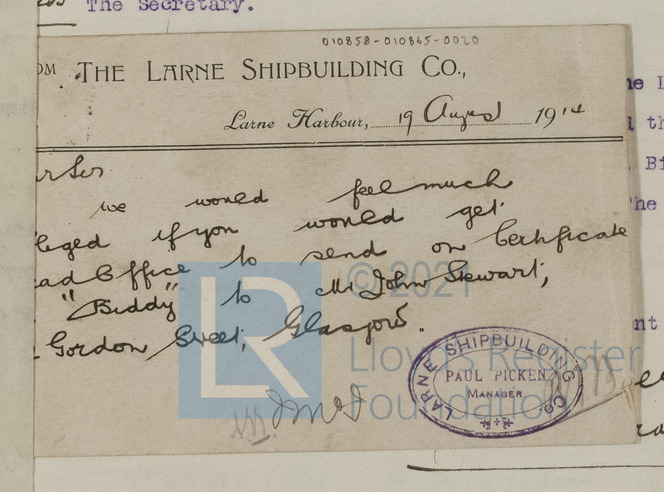 The Secretary.
010858-010865-0020
OM THE LARNE SHIPBUILDING CO.,
Larne Harbour, 19 August 1914
r Sir
we would feel much
leged if you would get
ead Office to send on Certificate
"Biddy" to Mr John Stewart,
Gordon Street, Glasgow.
© 2021
LR
Lloyd's Register
Foundation
LARNE SHIPBUILDING CO.
PAUL PICKEN
MANAGER